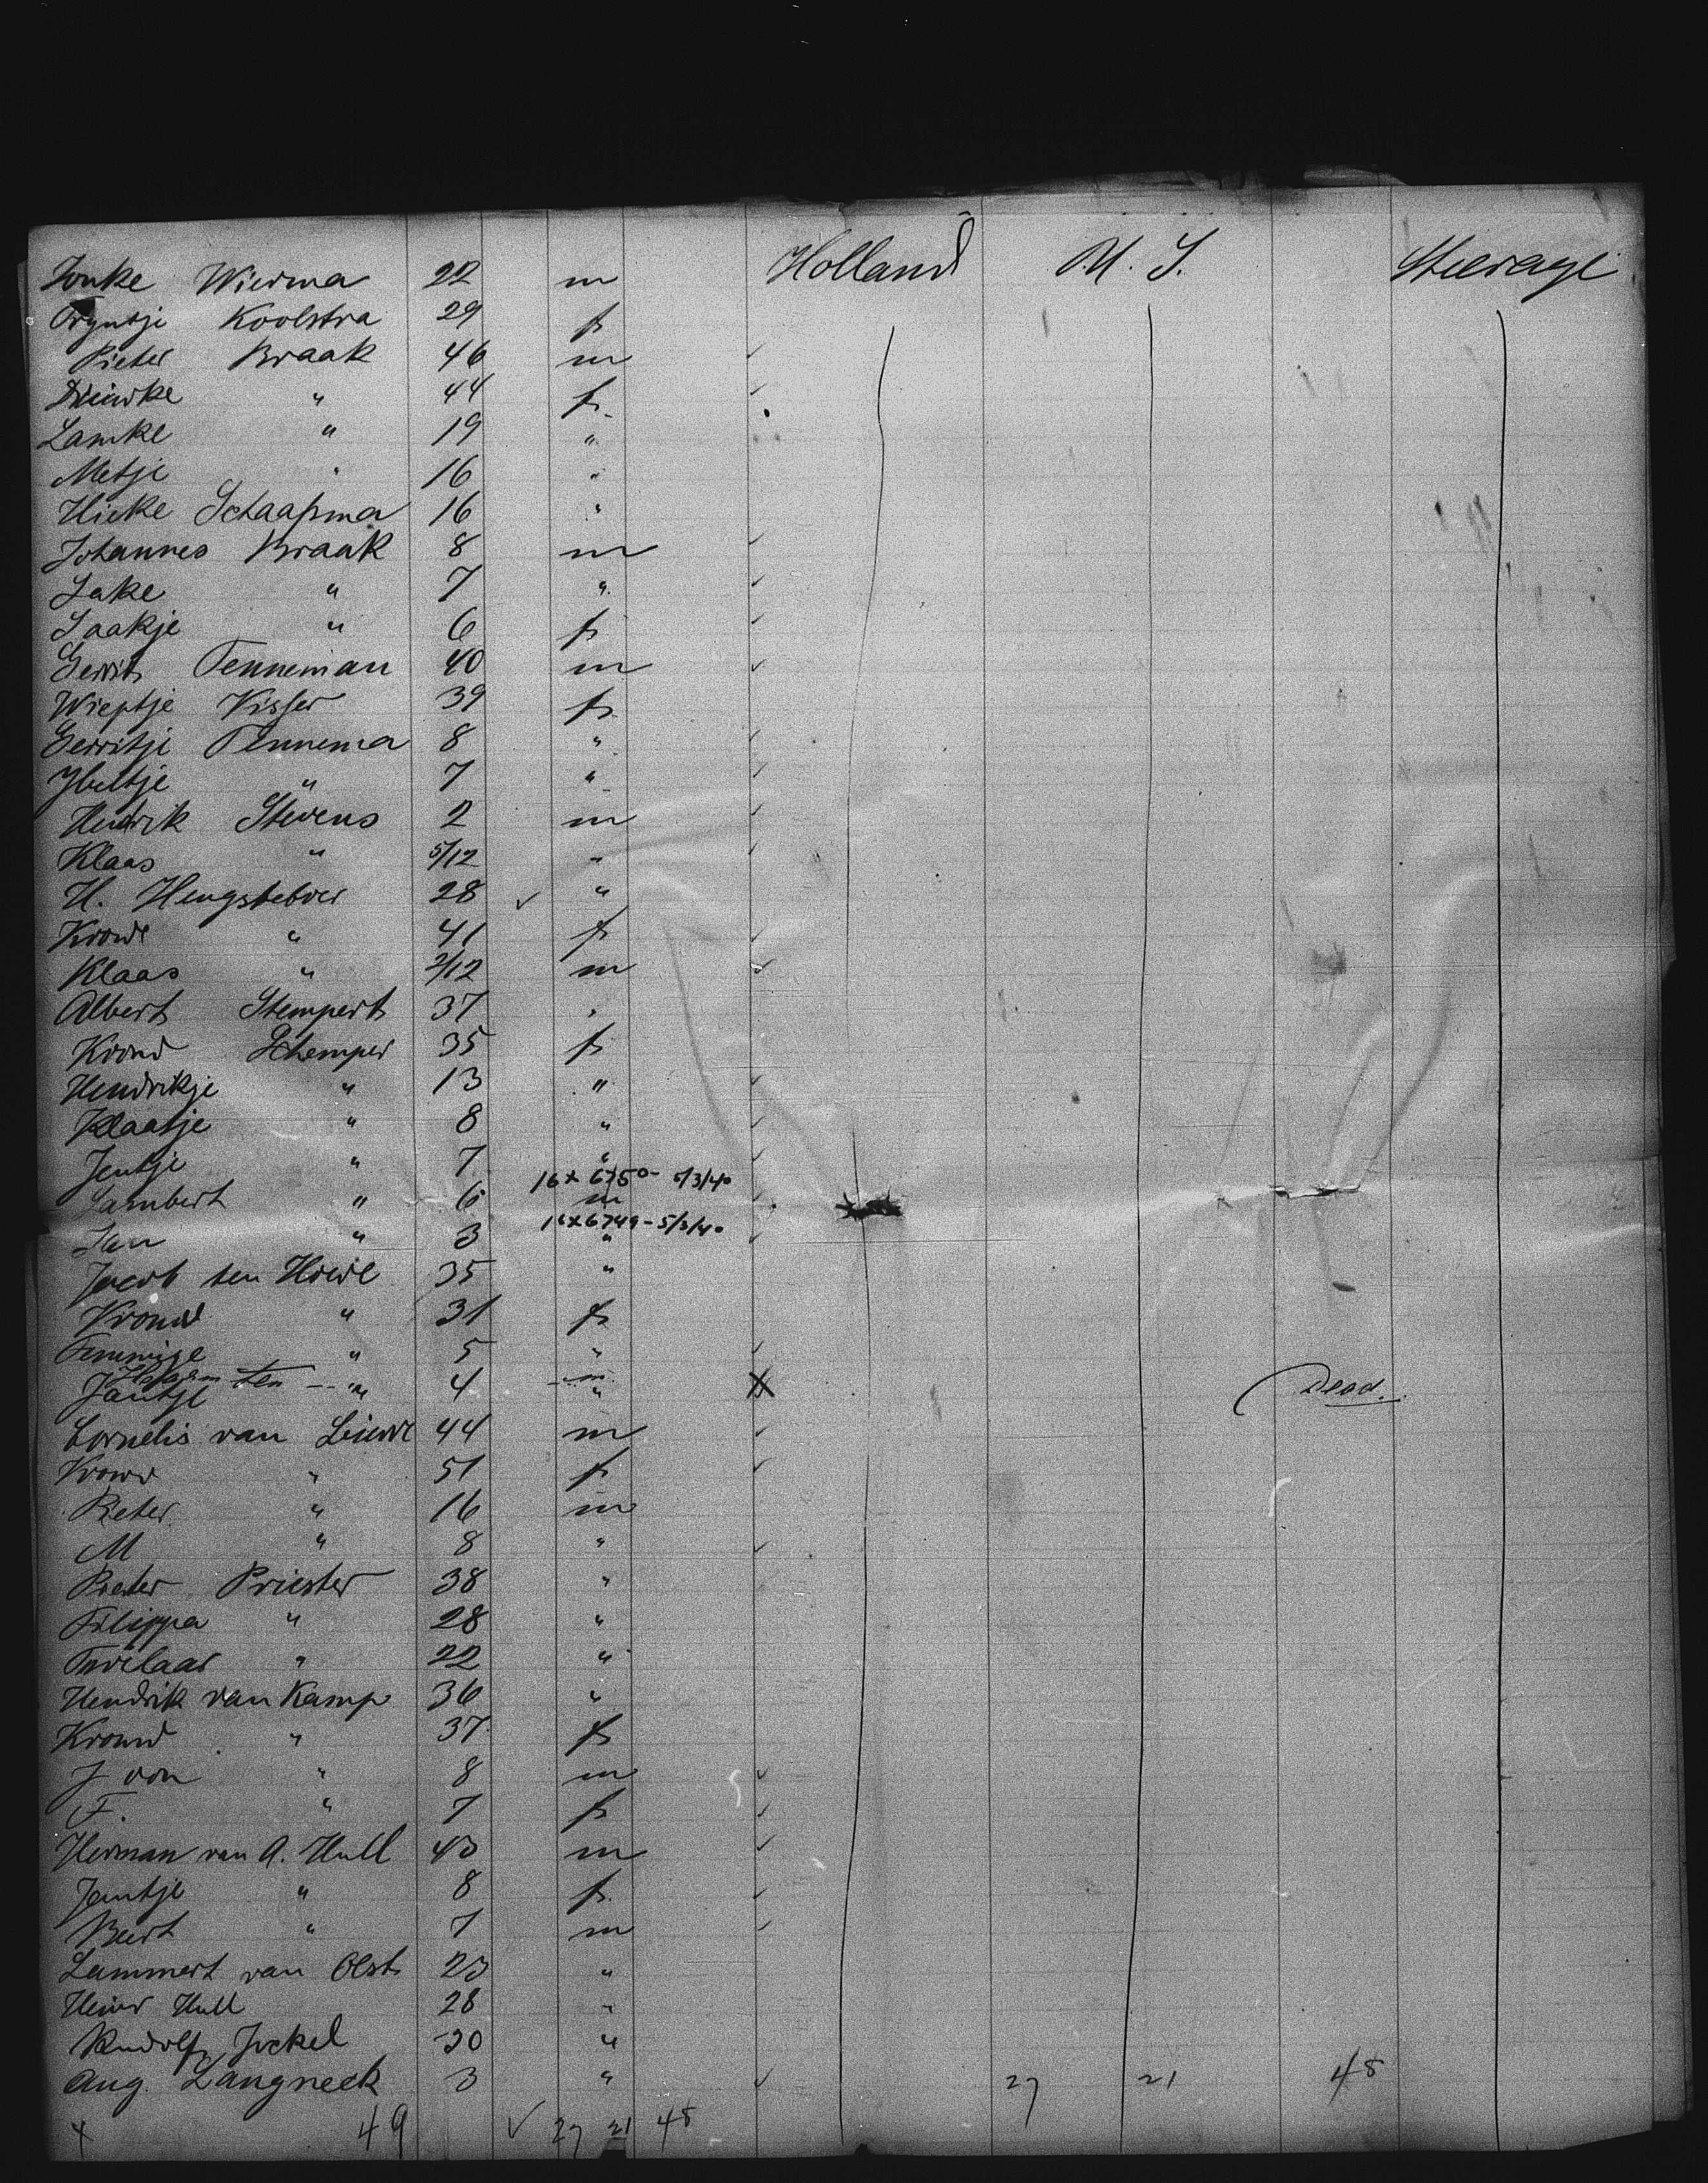 Fonke Wierma 22 m Holland U. S. Steerage
Tryntje Koolstra 29 f
Pieter Braak 46 m
Dieuwke " 44 f
Lamke " 19 "
Metje " 16 "
Hieke Schaapsma 16 "
Johannes Braak 8 m
Sake " 7 "
Saakje " 6 f
Gerrit Tenneman 40 m
Wieptje Visser 39 f
Gerritje Tennema 8 "
Ybeltje " 7 "
Hendrik Stevens 2 m
Klaas " 5/12 "
H. Hengsteboer 28 ✓ "
Vrouw " 41 f
Klaas " 2/12 m
Albert Stempert 37 "
Vrouw Schemper 35 f
Hendrikje " 13 "
Klaatje " 8 "
Jentje " 7 "
16x 6750- 5/3/40
Lambert " 6 m
16x6749-5/3/40
Jan " 3 "
Jacob ten Hoeve 35 "
Vrouw " 31 f
Femmige " 5 "
ten -- " m
Jantje 4 " X Dead.
Cornelis van Leiuwe 44 m
Vrouw " 51 f
Pieter " 16 m
M " 8 "
Pieter Priester 38 "
Filippa " 28 "
" 22 "
Hendrik van Kamp 36 "
Vrouw " 37 f
J von " 8 m
F. " 7 f
Herman van A. Hull 43 m
Jantje " 8 f
Beert " 7 m
Lammert van Olst 23 "
Heinr Hull 28 "
Rudolf Jockel 30 "
Aug. Langneck 3 " 27 21 48
x 49 ✓ 27 21 48